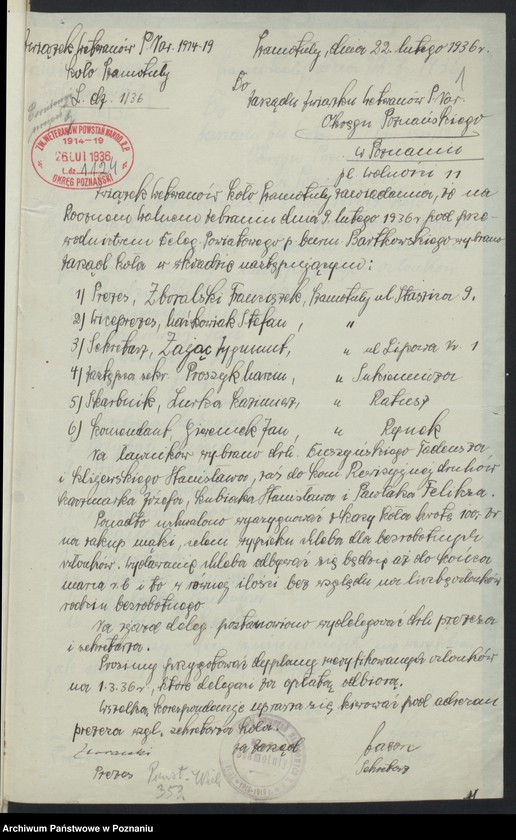 Związek weteranów P. Nar. 1914-19
Koło Szamotuły
L. dz. 1/36
Szamotuły, dnia 22. lutego 1936 r.
1
Do
Zarządu Związku weteranów P. Nar.
Okręgu Poznańskiego
w Poznaniu
pl. Wolności 11
ZW. WETERANÓW POWSTAŃ NAROD. R.P.
1914-19
26 LUT 1936
L.dz. 1124
OKRĘG POZNAŃSKI
Związek weteranów Koło Szamotuły zawiadamia, że na
Rocznem walnem zebraniu dnia 9. lutego 1936 r pod prze-
wodnictwem Deleg. Powiatowego p. Bartkowskiego wybrano
zarząd Koła w składzie następującym:
1) Prezes, Zboralski Franciszek, Szamotuły ul Staszica 9.
2) Wiceprezes, Maćkowiak Stefan, "
3) Sekretarz, Zając Zygmunt, " ul Lipowa Nr. 1
4) zastępca sekr. Proszyk Marcin, " Sukiennicza
5) Skarbnik, Lurka Kazimierz, " Ratusz
6) Komendant Jan, " Rynek
Na ławników wybrano drh. Tadeusza
i Stanisława, zaś do Kom Rewizyjnej druhów
Kaczmarka Józefa, Kubiaka Stanisława i Pawlaka Feliksa.
Ponadto uchwalono wyasygnować z kasy koła kwotę 100,- zł
na zakup mąki, celem wypieku chleba dla bezrobotnych
członków. Wydawanie chleba odbywać się będzie aż do końca
marca r.b i to w równej ilości bez względu na liczbę członków
rodzin bezrobotnego
Na zjazd deleg. postanowiono wydelegować drh. prezesa
i sekretarza.
Prosimy przygotować dyplomy zweryfikowanych członków
na 1.3.36 r., które delegaci za opłatą odbiorą.
Wszelką korespondencję uprasza się kierować pod adresem
prezesa wzgl. sekretarza Koła.
za Zarząd
Zboralski
Prezes
Zając
Sekretarz
352
Archiwum Państwowe w Poznaniu